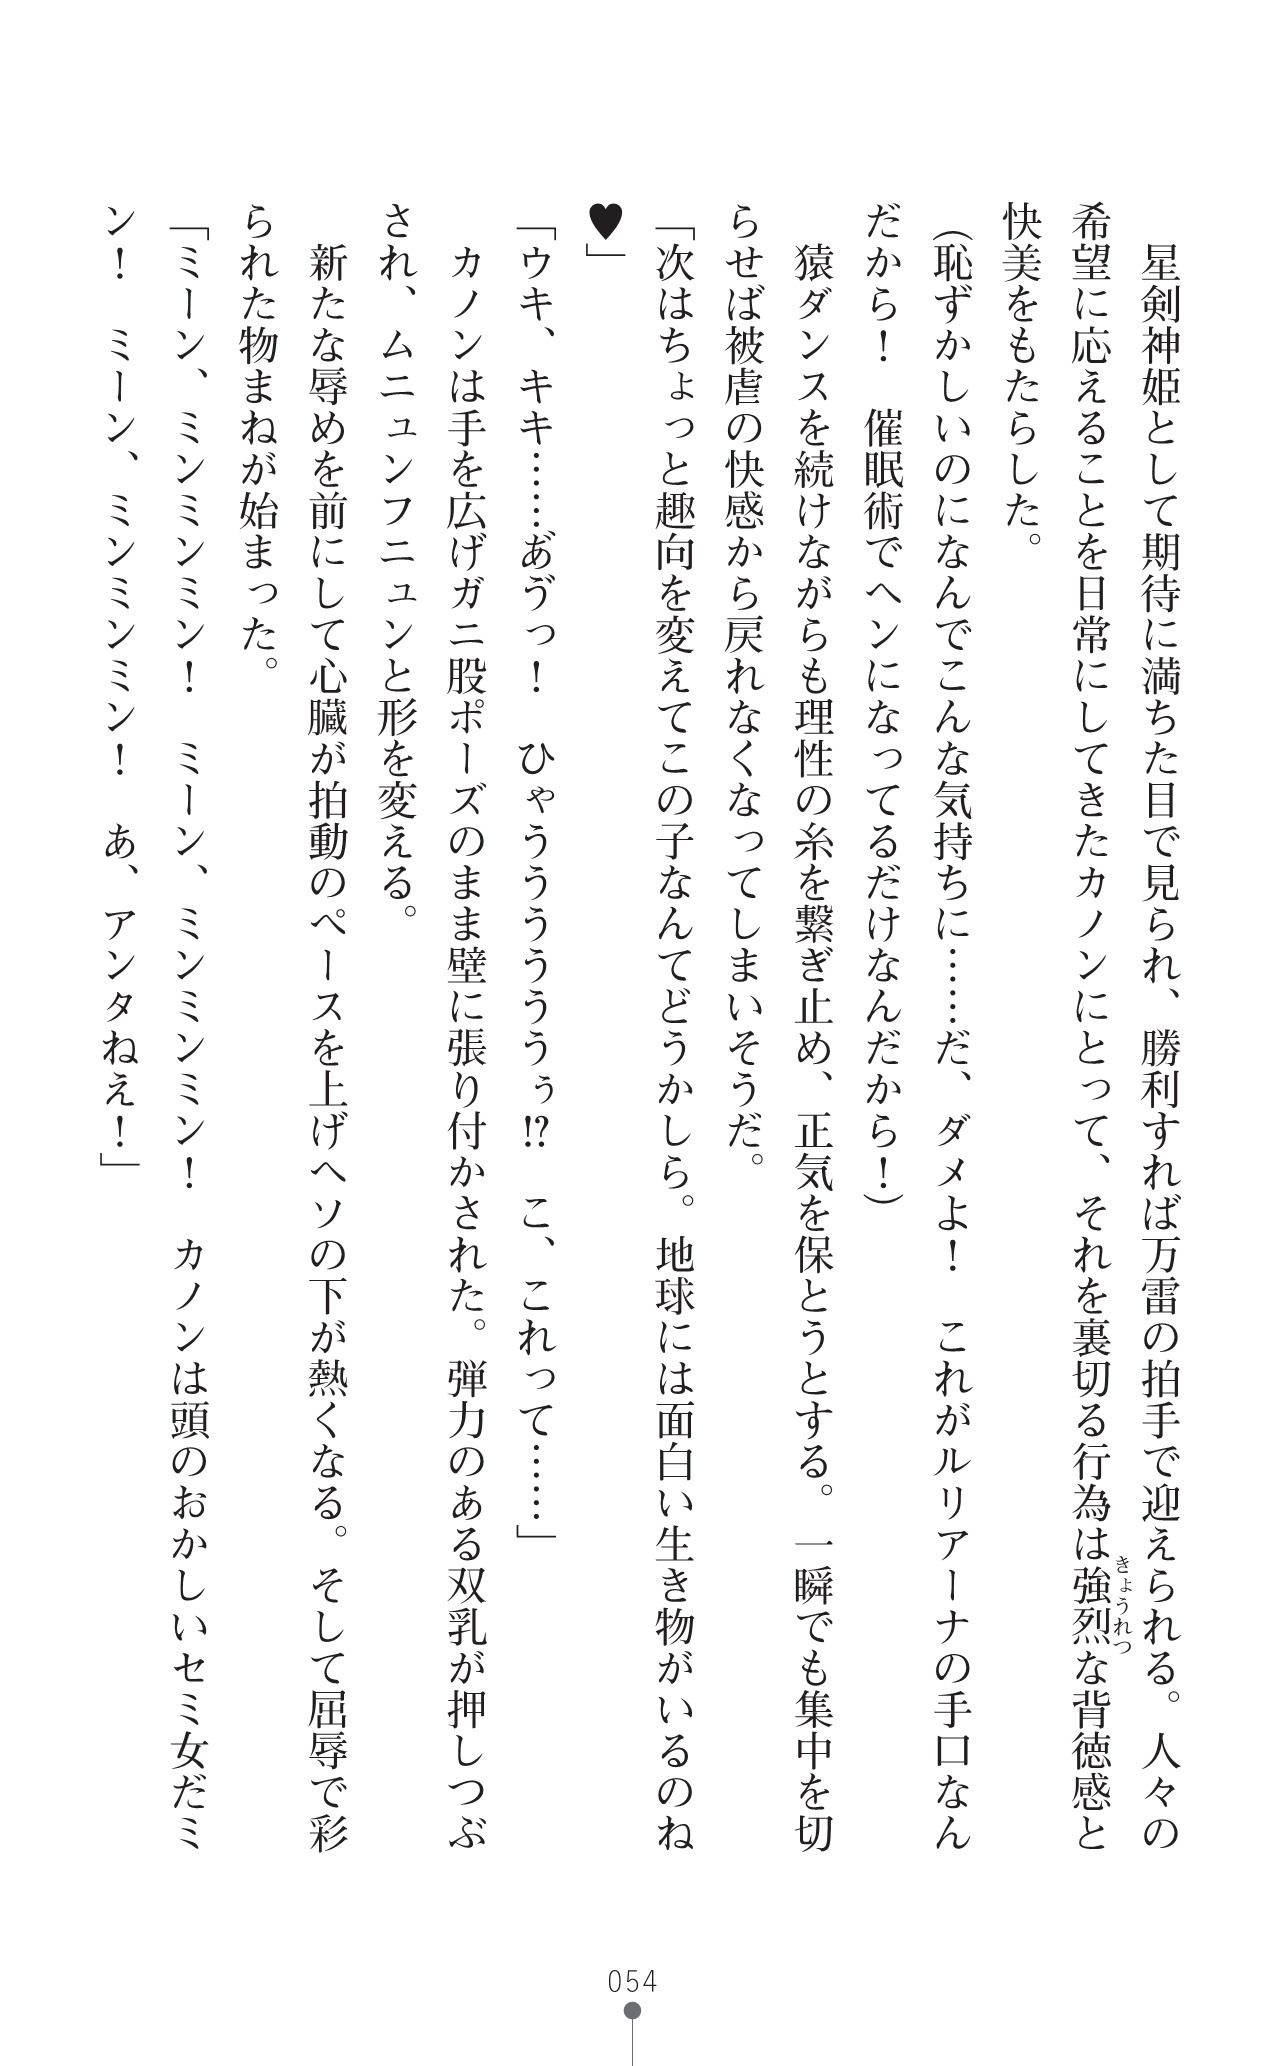 星剣神姫として期待に満ちた目で見られ、勝利すれば万雷の拍手で迎えられる。人々の
希望に応えることを日常にしてきたカノンにとって、それを裏切る行為は強烈な背徳感と
きょうれつ
快美をもたらした。
（恥ずかしいのになんでこんな気持ちに……だ、ダメよ！　これがルリアーナの手口なん
だから！　催眠術でヘンになってるだけなんだから！）
　猿ダンスを続けながらも理性の糸を繋ぎ止め、正気を保とうとする。一瞬でも集中を切
らせば被虐の快感から戻れなくなってしまいそうだ。
「次はちょっと趣向を変えてこの子なんてどうかしら。地球には面白い生き物がいるのね
♥」
「ウキ、キキ……あ゙ゔっ！　ひゃうううううぅ!?　こ、これって……」
　カノンは手を広げガニ股ポーズのまま壁に張り付かされた。弾力のある双乳が押しつぶ
され、ムニュンフニュンと形を変える。
　新たな辱めを前にして心臓が拍動のペースを上げヘソの下が熱くなる。そして屈辱で彩
られた物まねが始まった。
「ミーン、ミンミンミン！　ミーン、ミンミンミン！　カノンは頭のおかしいセミ女だミ
ン！　ミーン、ミンミンミン！　あ、アンタねえ！」
054